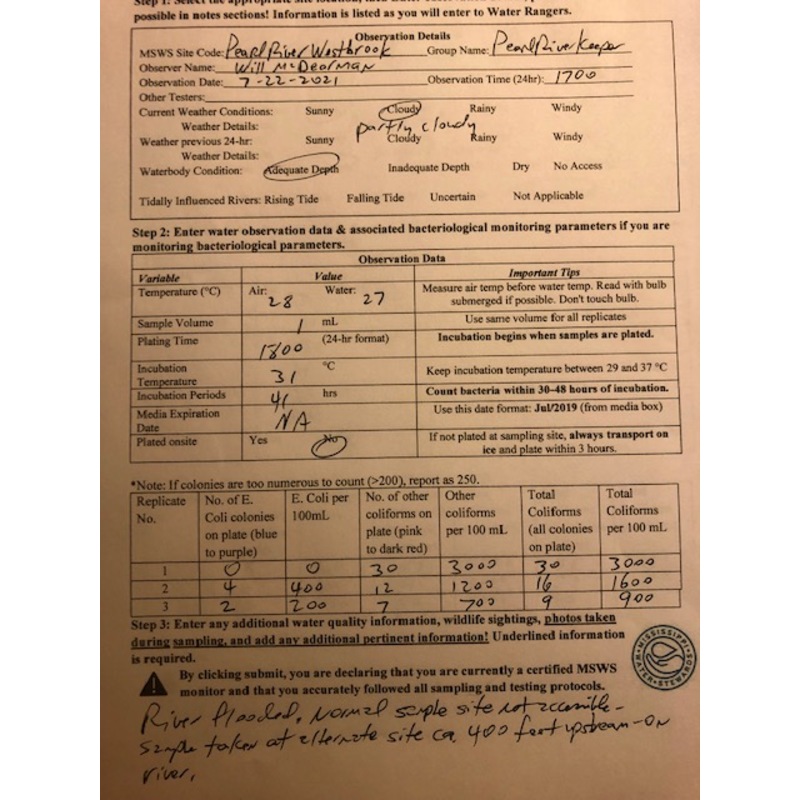 possible in notes sections! Information is listed as you will enter to Water Rangers.
Observation Details
MSWS Site Code: Pearl River Westbrook Group Name: PearlRiverKeeper
Observer Name: Will McDearman
Observation Date: 7-22-2021 Observation Time (24hr): 1700
Other Testers:
Current Weather Conditions: Sunny Cloudy Rainy Windy
Weather Details: partly cloudy
Weather previous 24-hr: Sunny Cloudy Rainy Windy
Weather Details:
Waterbody Condition: Adequate Depth Inadequate Depth Dry No Access
Tidally Influenced Rivers: Rising Tide Falling Tide Uncertain Not Applicable
Step 2: Enter water observation data & associated bacteriological monitoring parameters if you are
monitoring bacteriological parameters.
Observation Data
Variable Value Important Tips
Temperature (°C) Air: 28 Water: 27 Measure air temp before water temp. Read with bulb
submerged if possible. Don't touch bulb.
Sample Volume 1 mL Use same volume for all replicates
Plating Time 1800 (24-hr format) Incubation begins when samples are plated.
Incubation
Temperature 31 °C Keep incubation temperature between 29 and 37 °C
Incubation Periods 41 hrs Count bacteria within 30-48 hours of incubation.
Media Expiration
Date NA Use this date format: Jul/2019 (from media box)
Plated onsite Yes No If not plated at sampling site, always transport on
ice and plate within 3 hours.
*Note: If colonies are too numerous to count (>200), report as 250.
Replicate No. of E. E. Coli per No. of other Other Total Total
No. Coli colonies 100mL coliforms on coliforms Coliforms Coliforms
on plate (blue plate (pink per 100 mL (all colonies per 100 mL
to purple) to dark red) on plate)
1 0 0 30 3000 30 3000
2 4 400 12 1200 16 1600
3 2 200 7 700 9 900
Step 3: Enter any additional water quality information, wildlife sightings, photos taken
during sampling, and add any additional pertinent information! Underlined information
is required.
By clicking submit, you are declaring that you are currently a certified MSWS
monitor and that you accurately followed all sampling and testing protocols.
MISSISSIPPI WATER STEWARDS
River flooded, Normal sample site not accessible-
Sample taken at alternate site ca. 400 feet upstream-on
river.